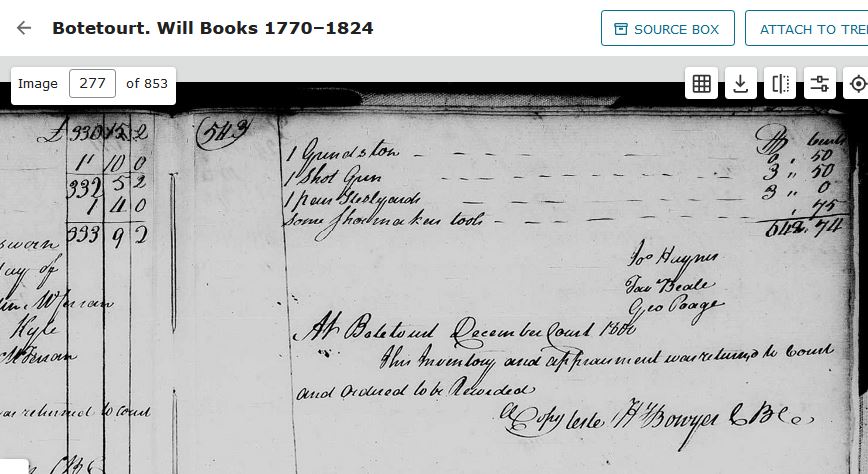 Botetourt. Will Books 1770–1824
SOURCE BOX
ATTACH TO TREE
Image 277 of 853
£ 330 15 2
1 10 0
332 5 2
1 4 0
333 9 2
sworn
day of
Kyle
as returned to court
543
D cents
1 Grindston 0 " 50
1 Shot Gun 3 " 50
1 pair Steelyards 3 " 0
Some Shoemakers tools " 75
642. 74
Jos Haynes
Tav Beale
Geo Poage
At Botetourt December Court 1800
This Inventory and appraisment was returned to Court
and ordered to be Recorded
A Copy teste Hy Bowyer C B C